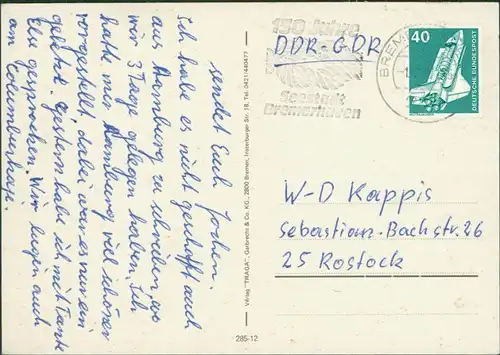 sendet Euch Jochen.
Ich habe es nicht geschafft auch
aus Hamburg zu schreiben, wo
wir 3 Tage gelegen haben. Ich
hatte mir Hamburg viel schöner
vorgestellt, dabei war es nur ein
gestern habe ich mit Tante
Ela gesprochen. Wir liegen auch
am Columbuskaje.
Verlag "TRAGA", Gerbrecht & Co. KG., 2800 Bremen, Insterburger Str. 18, Tel. 0421/440477
285-12
150 Jahre
Seestadt
Bremerhaven
BREMERHAVEN
DDR-GDR
40
DEUTSCHE BUNDESPOST
W-D Kappis
Sebastian-Bach-str. 26
25 Rostock